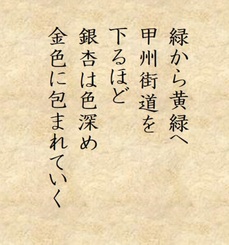 緑から黄緑へ
甲州街道を
下るほど
銀杏は色深め
金色に包まれていく